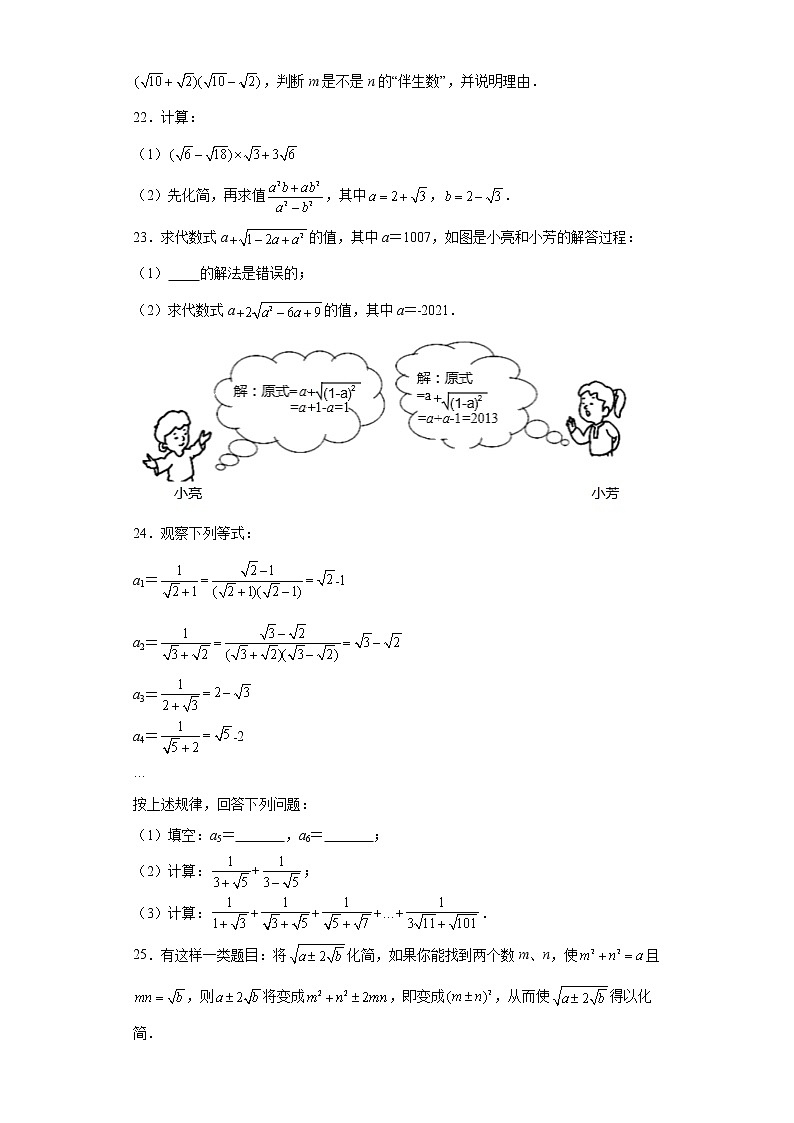 (√10+√2)(√10−√2)，判断m是不是n的“伴生数”，并说明理由．
22．计算：
（1）(√6−√18)×√3+3√6
（2）先化简，再求值(a²b+ab²)/(a²−b²)，其中a=2+√3，b=2−√3．
23．求代数式a+√(1−2a+a²)的值，其中a＝1007，如图是小亮和小芳的解答过程：
（1）____的解法是错误的；
（2）求代数式a+2√(a²−6a+9)的值，其中a＝-2021．
解：原式=a+√(1-a)²
=a+1-a=1
解：原式
=a+√(1-a)²
=a+a-1=2013
小亮
小芳
24．观察下列等式：
a₁＝1/(√2+1)=(√2−1)/((√2+1)(√2−1))=√2-1
a₂＝1/(√3+√2)=(√3−√2)/((√3+√2)(√3−√2))=√3−√2
a₃＝1/(2+√3)=2−√3
a₄＝1/(√5+2)=√5-2
…
按上述规律，回答下列问题：
（1）填空：a₅＝_______，a₆＝_______；
（2）计算：1/(3+√5)+1/(3−√5)；
（3）计算：1/(1+√3)+1/(√3+√5)+1/(√5+√7)+…+1/(3√11+√101)．
25．有这样一类题目：将√(a±2√b)化简，如果你能找到两个数m、n，使m²+n²=a且
mn=√b，则a±2√b将变成m²+n²±2mn，即变成(m±n)²，从而使√(a±2√b)得以化
简．